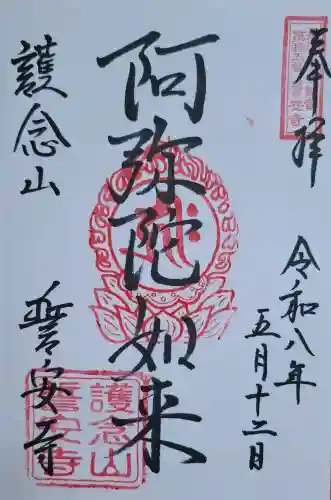 奉拝
令和八年
五月十二日
阿弥陀如来
護念山
誓安寺
護念山
誓安寺